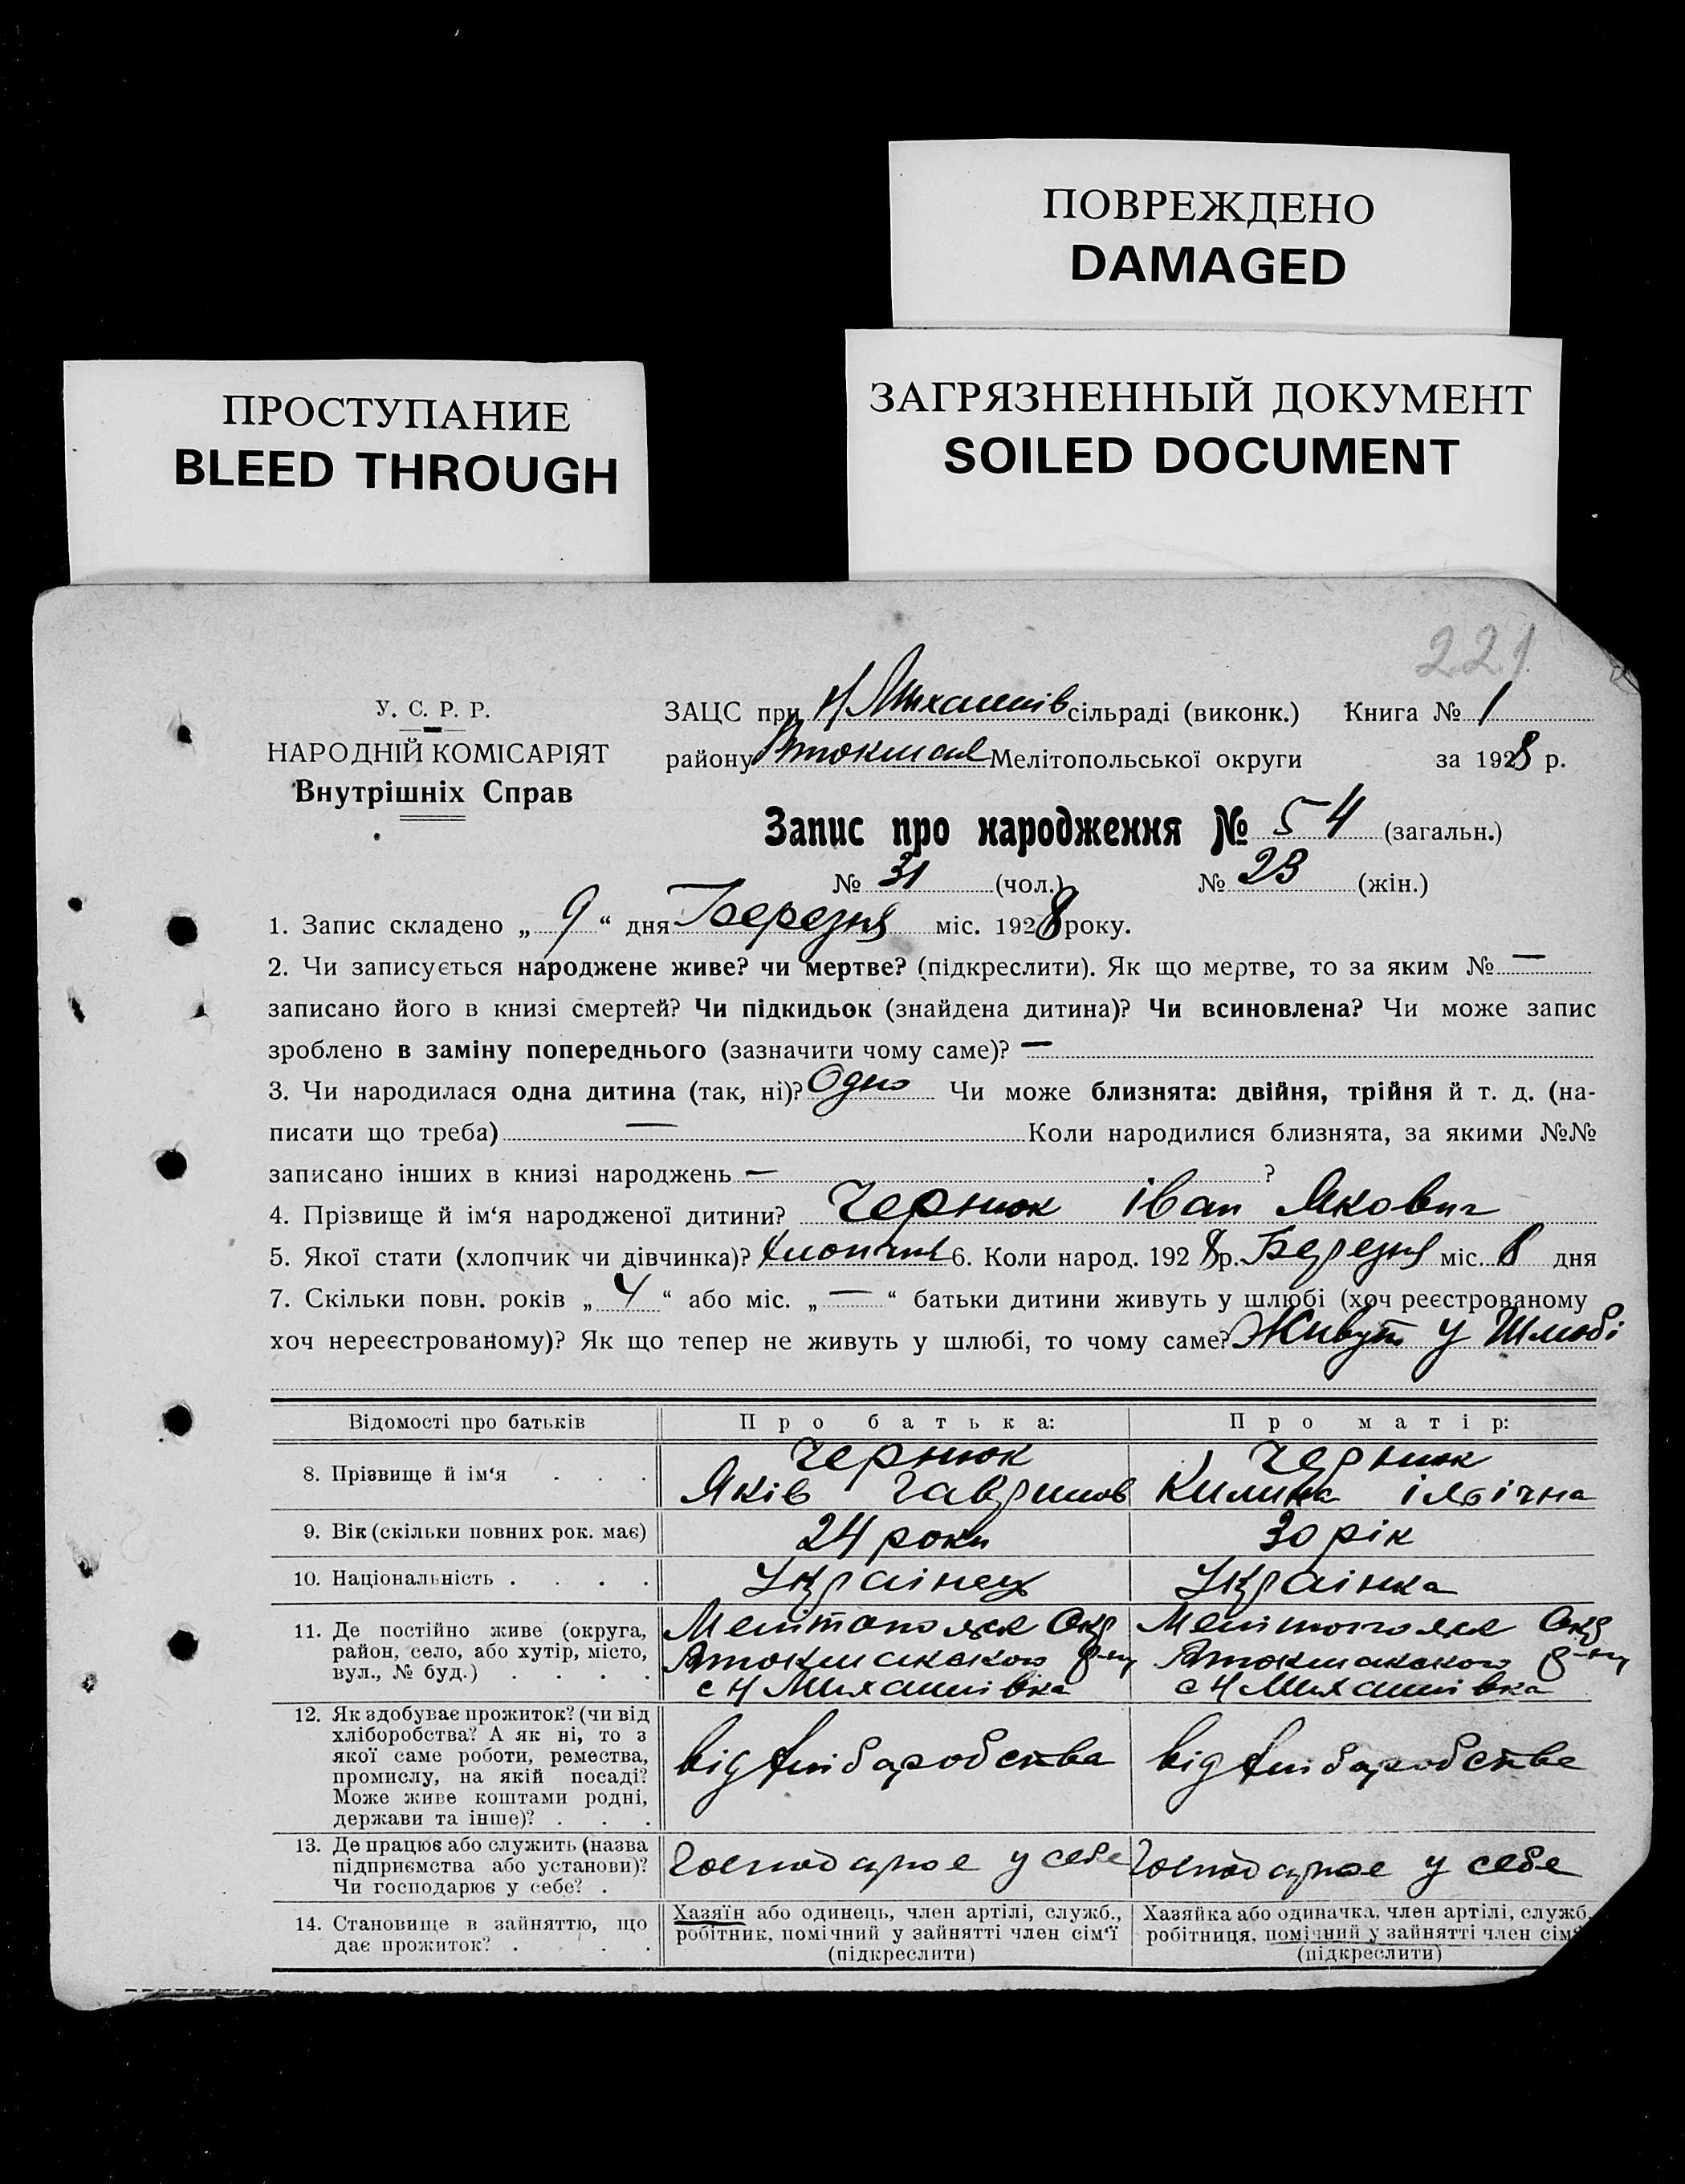 ПОВРЕЖДЕНО
DAMAGED
ПРОСТУПАНИЕ
BLEED THROUGH
ЗАГРЯЗНЕННЫЙ ДОКУМЕНТ
SOILED DOCUMENT
221
У. С. Р. Р.
НАРОДНІЙ КОМІСАРІЯТ
Внутрішніх Справ
ЗАЦС при Н Михайлів сільраді (виконк.) Книга № 1
району Втокмак Мелітопольської округи за 1928 р.
Запис про народження № 54 (загальн.)
№ 31 (чол.) № 23 (жін.)
1. Запис складено „ 9 “ дня Березня міс. 1928 року.
2. Чи записується народжене живе? чи мертве? (підкреслити). Як що мертве, то за яким № —
записано його в книзі смертей? Чи підкидьок (знайдена дитина)? Чи всиновлена? Чи може запис
зроблено в заміну попереднього (зазначити чому саме)? —
3. Чи народилася одна дитина (так, ні)? Одно Чи може близнята: двійня, трійня й т. д. (на-
писати що треба) — Коли народилися близнята, за якими №№
записано інших в книзі народжень — ?
4. Прізвище й ім‘я народженої дитини? Чернюк Іван Якович
5. Якої стати (хлопчик чи дівчинка)? Хлопчик 6. Коли народ. 1928 р. Березня міс. 8 дня
7. Скільки повн. років „ 4 “ або міс. „ — “ батьки дитини живуть у шлюбі (хоч реєстрованому
хоч нереєстрованому)? Як що тепер не живуть у шлюбі, то чому саме? Живуть у Шлюбі
Відомості про батьків Про батька: Про матір:
8. Прізвище й ім‘я . . .
Чернюк
Яків Гаврилов
Чернюк
Килина ілічна
9. Вік (скільки повних рок. має) 24 роки 30 рік
10. Національність . . . . Українець Українка
11. Де постійно живе (округа,
район, село, або хутір, місто,
вул., № буд.) . . . .
Мелітопольск Окр
Втокмакского р-ну
с Н Михайлівка
Мелітопольск Окр
Втокмакского р-ну
с Н Михайлівка
12. Як здобуває прожиток? (чи від
хліборобства? А як ні, то з
якої саме роботи, ремества,
промислу, на якій посаді?
Може живе коштами родні,
держави та інше)? . . .
від хліборобства
від хліборобства
13. Де працює або служить (назва
підприємства або установи)?
Чи господарює у себе? .
Господарює у себе
Господарює у себе
14. Становище в зайняттю, що
дає прожиток? . . . .
Хазяїн або одинець, член артілі, служб.,
робітник, помічний у зайнятті член сім‘ї
(підкреслити)
Хазяйка або одиначка, член артілі, служб.
робітниця, помічний у зайнятті член сім‘
(підкреслити)